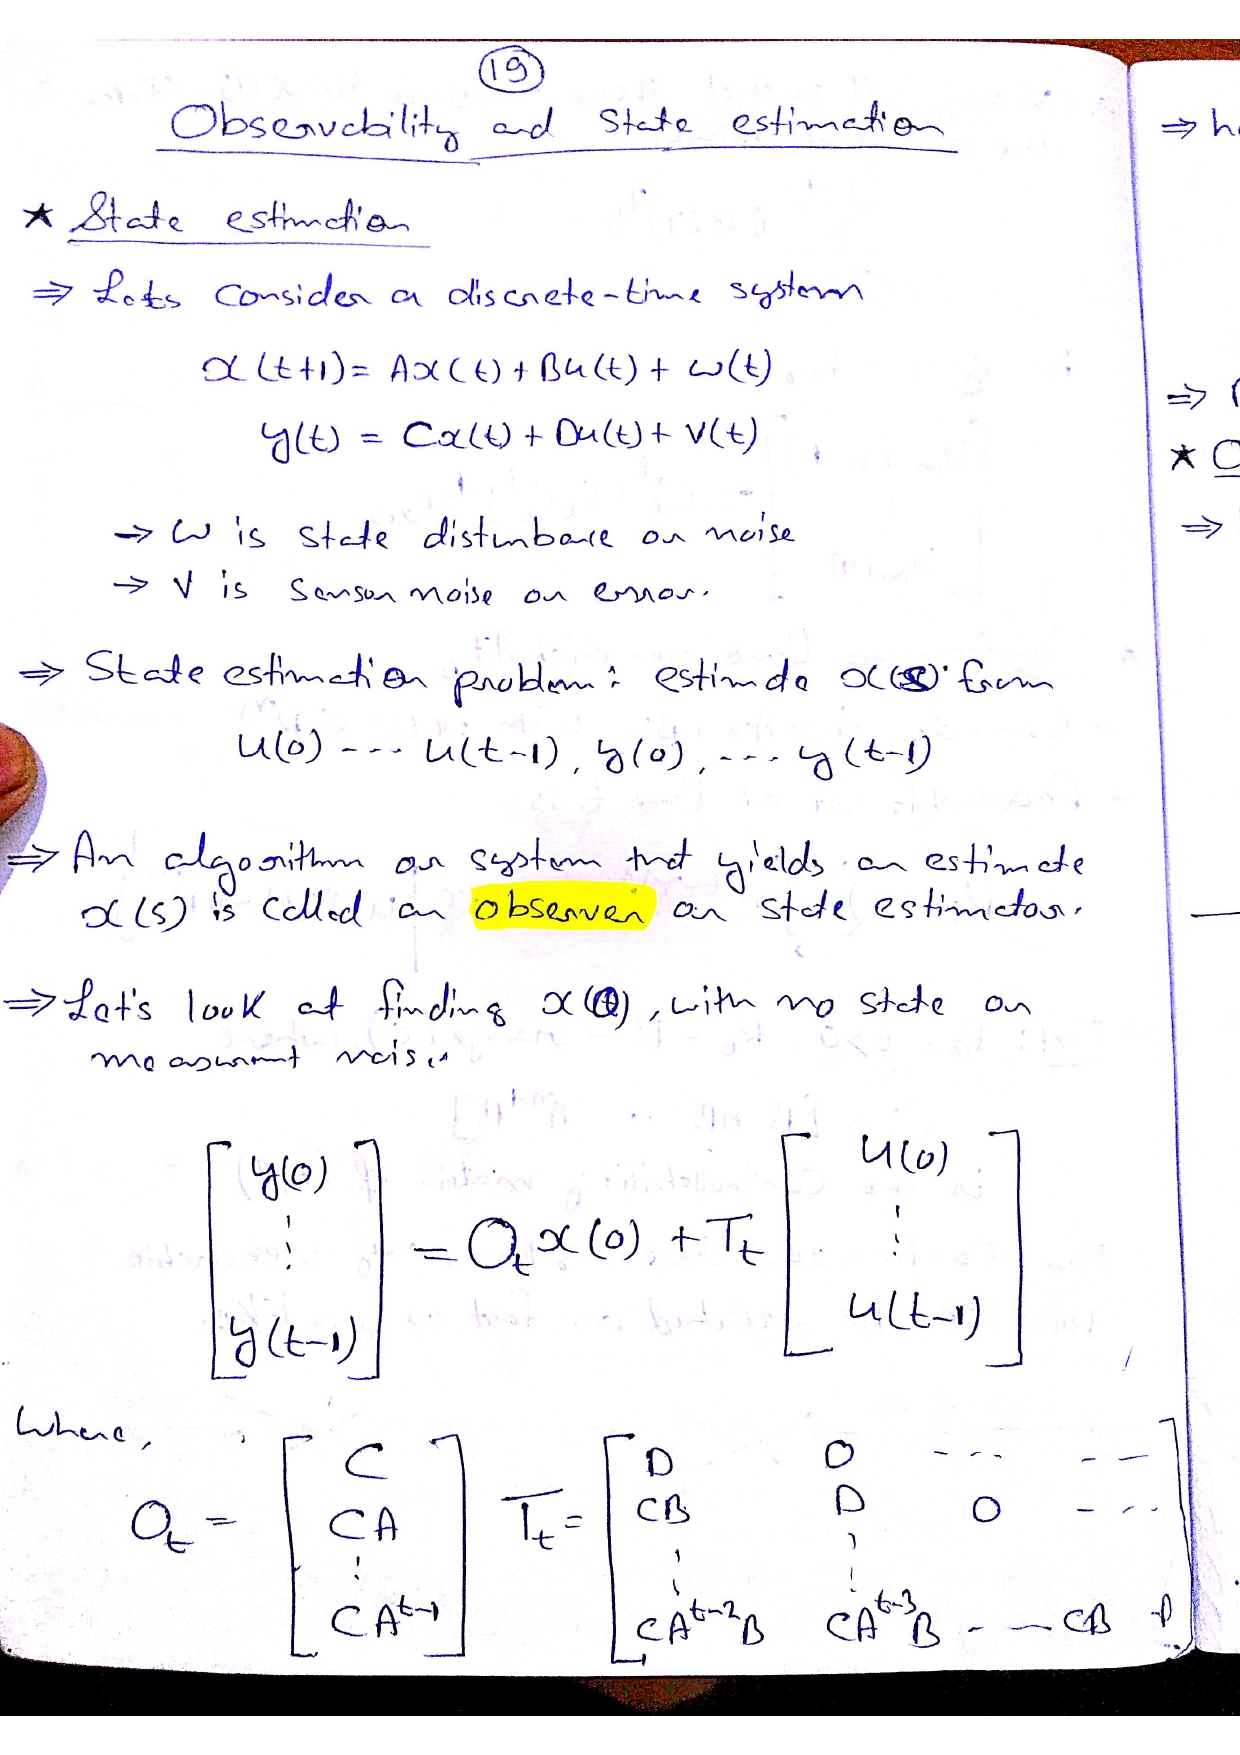 19
Observability and State estimation
★ State estimation
⇒ Lets Consider a discrete-time system
x(t+1) = Ax(t) + Bu(t) + w(t)
y(t) = Cx(t) + Du(t) + v(t)
→ w is state disturbance or noise
→ v is sensor noise or error.
⇒ State estimation problem: estimate x(s) from
u(0) --- u(t-1), y(0), --- y(t-1)
⇒ An algorithm or system that yields an estimate
x(s) is called an observer or state estimator.
⇒ Let's look at finding x(0), with no state or
measurment noise.
[y(0) ⋮ y(t-1)] = O_t x(0) + T_t [u(0) ⋮ u(t-1)]
Where,
O_t = [C CA ⋮ CA^{t-1}] T_t = [D 0 --- --
CB D 0 ---
⋮ ⋮
CA^{t-2}B CA^{t-3}B --- CB D]
⇒
⇒
★
⇒